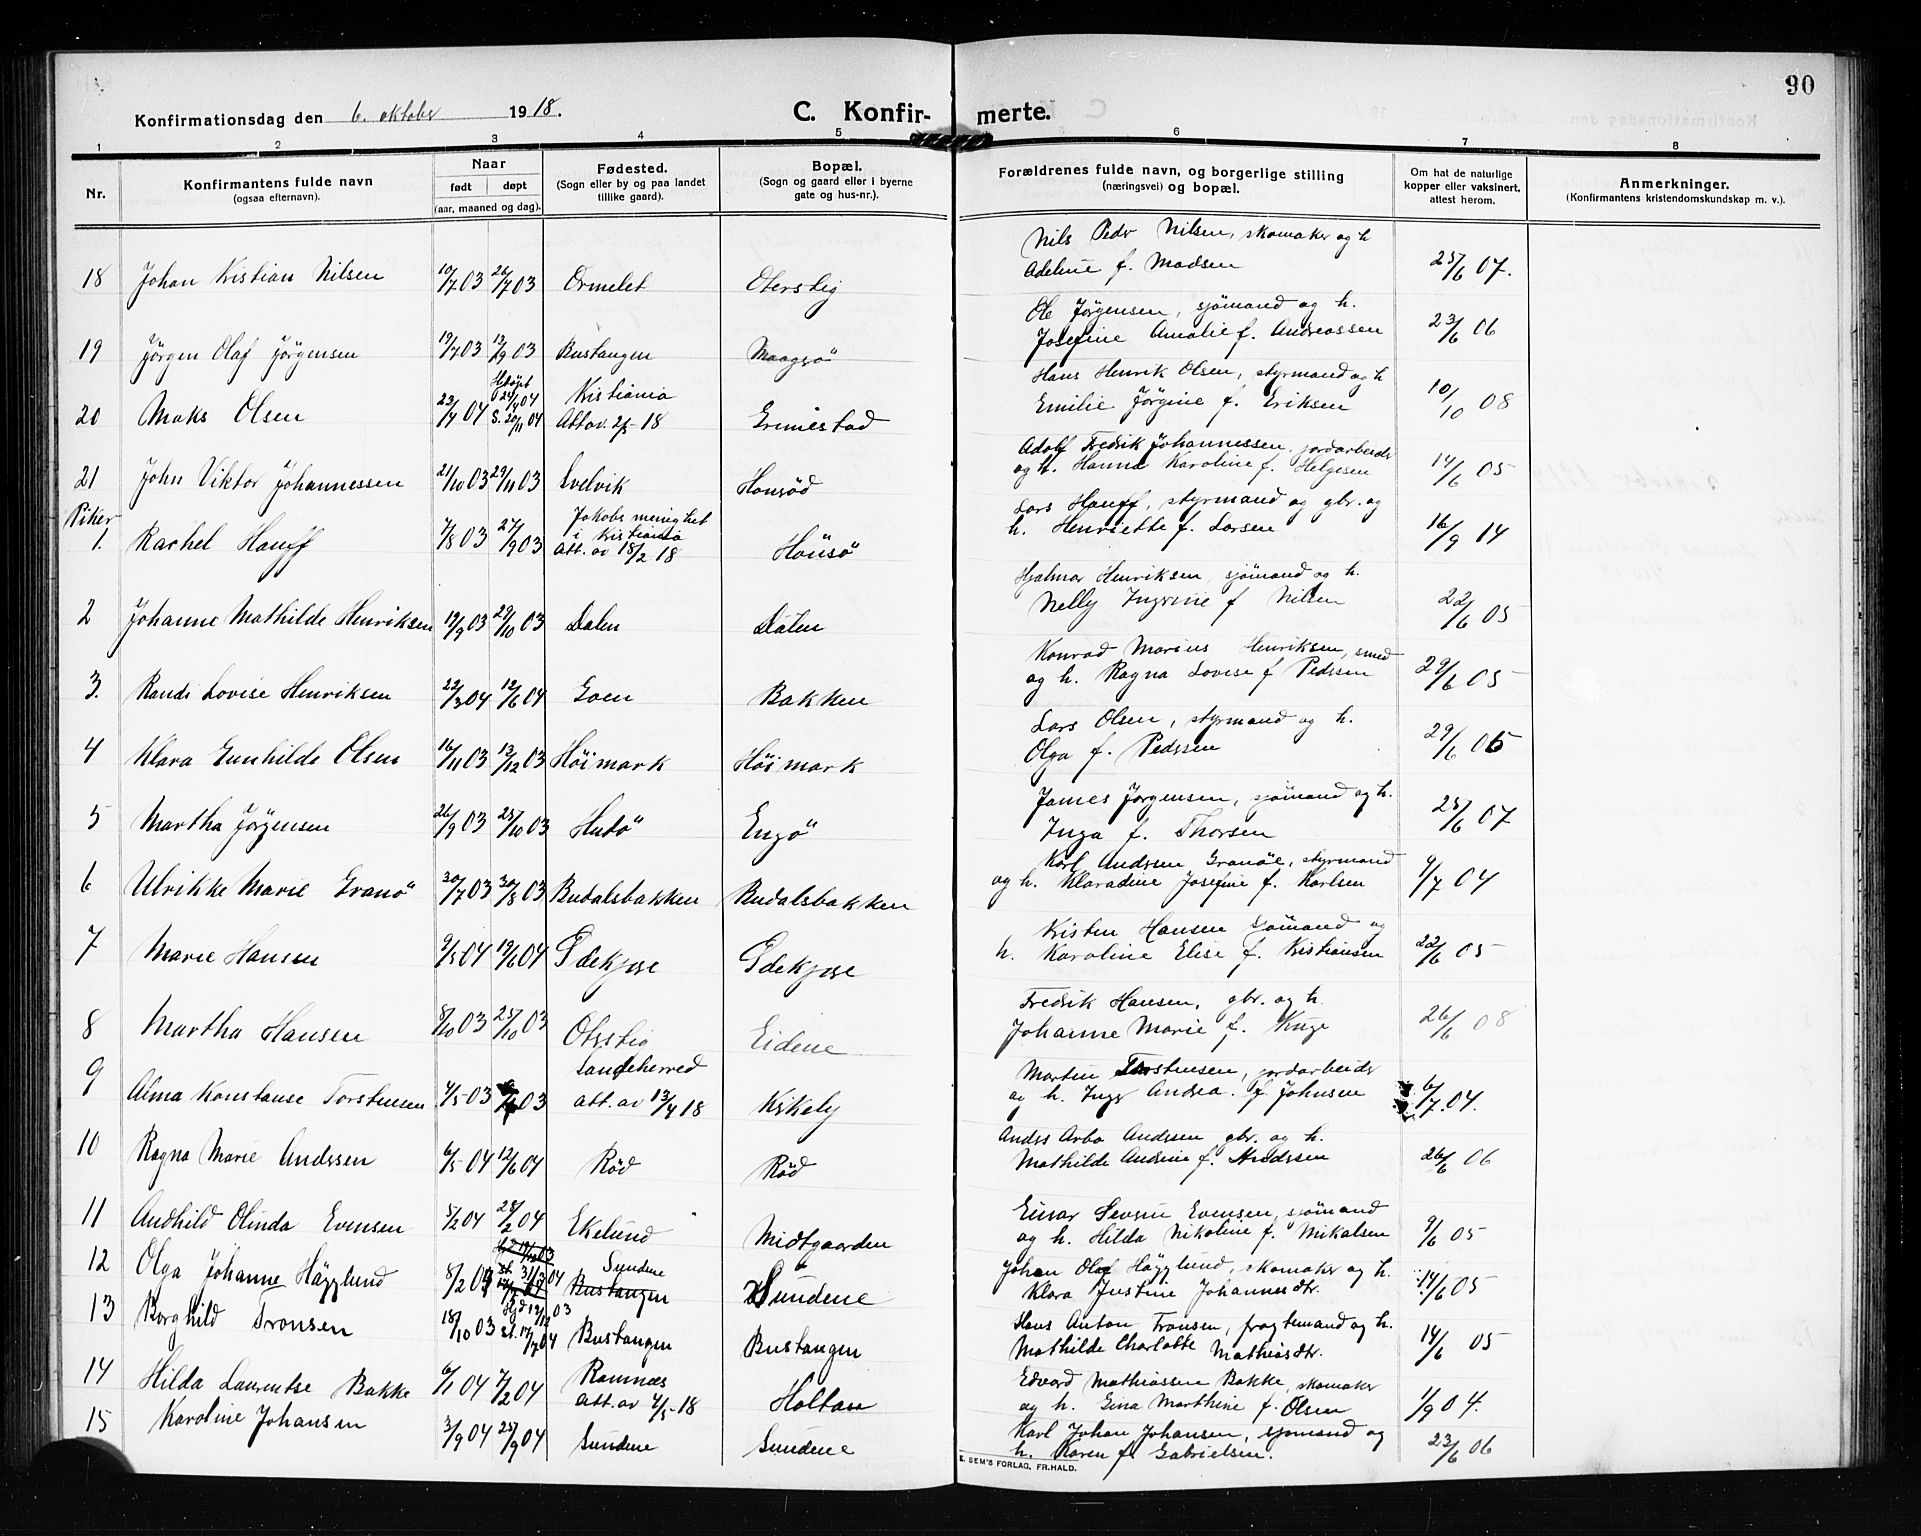 90
Konfirmationsdag den 6. oktober 1918.
C. Konfirmerte.
1 2 3 4 5 6 7 8
Nr.
Konfirmantens fulde navn
(ogsaa efternavn).
Naar
født døpt
(aar, maaned og dag).
Fødested.
(Sogn eller by og paa landet
tillike gaard).
Bopæl.
(Sogn og gaard eller i byerne
gate og hus-nr.).
Forældrenes fulde navn, og borgerlige stilling
(næringsvei) og bopæl.
Om hat de naturlige
kopper eller vaksinert,
attest herom.
Anmerkninger.
(Konfirmantens kristendomskundskap m. v.).
18 Johan Kristian Nilsen 10/7 03 26/7 03 Ormelet Oterstig
Nils Peder Nilsen, skomaker og h
Adeline f. Madsen 25/6 07.
19 Jörgen Olaf Jörgensen 19/7 03 13/9 03 Bustangen Maagsö
Ole Jörgensen, sjömand og h.
Josefine Amalie f. Andreassen 23/6 06
20 Maks Olsen 23/4 04 Hjdöpt 24/4 04 S. 20/11 04 Kristiania
Att. av. 2/5-18 Grimestad
Hans Henrik Olsen, styrmand og h
Emilie Jörgine f. Eriksen 10/10 08
21 John Viktor Johannessen 21/10 03 29/11 03 Svelvik Honsöd
Adolf Fredrik Johannessen, jordarbeider
og h. Hanna Karoline f. Helgesen 14/6 05
Piker
1. Rachel Hauff 7/8 03 27/9 03 Jakobs menighet
i Kristiania
att. av 18/2 18 Hönsö
Lars Hauff, styrmand og gbr. og
h. Henriette f. Larsen 16/9 14
2 Johanne Mathilde Henriksen 19/9 03 29/10 03 Dalen Dalen
Hjalmar Henriksen, sjömand og h.
Nelly Ingrine f Nilsen 22/6 05
3. Randi Lovise Henriksen 22/3 04 12/6 04 Goen Bakken
Konrad Marius Henriksen, smed
og h. Ragna Lovise f Pedersen 29/6 05
4 Klara Gunhilde Olsen 16/11 03 13/12 03 Höimark Höimark
Lars Olsen, styrmand og h.
Olga f. Pedersen 29/6 05
5 Martha Jörgensen 26/9 03 25/10 03 Hudö Engö
James Jörgensen, sjömand og h.
Inga f. Thorsen 25/6 07
6 Ulrikke Marie Granö 30/7 03 30/8 03 Budalsbakken Budalsbakken
Karl Andersen Granöe, styrmand
og h. Klaradine Josefine f. Karlsen 9/7 04
7 Marie Hansen 9/5 04 19/6 04 Gdekjose Gdekjose
Kristen Hansen sjömand og
h. Karoline Elise f. Kristiansen 22/6 05
8 Martha Hansen 8/10 03 25/10 03 Oterstig Eidene
Fredrik Hansen, gbr. og h.
Johanne Marie f. Kuge 26/6 08
9 Alma Konstanse Torstensen 4/5-03 03 Sandeherred
att. av 13/4 18 Kirkely
Martin Torstensen, jordarbeider
og h. Inger Andrea f Johnsen 6/7. 04.
10 Ragna Marie Andersen 6/5 04 12/6 04 Röd Röd
Anders Arbo Andersen gbr. og h.
Mathilde Andrine f. Andersen 26/6 06
11 Andhild Olinda Evensen 5/2 04 28/2 04 Ekelund Midtgaarden
Einar Severin Evensen, sjömand
og h. Hilda Nikoline f. Mikalsen 9/6 05
12 Olga Johanne Hägglund 8/2 04 31/3 04 Sundene
Bustangen Sundene
Johan Olof Hägglund, skomaker og h.
Klara Justine Johannesdtr. 14/6 05
13 Borghild Fronsen 18/10 03 Hjd 13/12 03 st. 17/7 04 Bustangen Bustangen
Hans Anton Fronsen, fragtemand og h.
Mathilde Charlotte Mathiasdtr. 14/6 05
14 Hilda Laurentse Bakke 6/1 04 7/2 04 Ramnæs
att. av 4/5-18 Holtan
Edvard Mathiassen Bakke, skomaker
og h. Gina Marthine f. Olsen 1/9 04.
15 Karoline Johansen 3/9 04 25/9 04 Sundene Sundene
Karl Johan Johansen, sjomand og
h. Karen f Gabrielsen. 23/6 06
E. SEM'S FORLAG, FR.HALD.